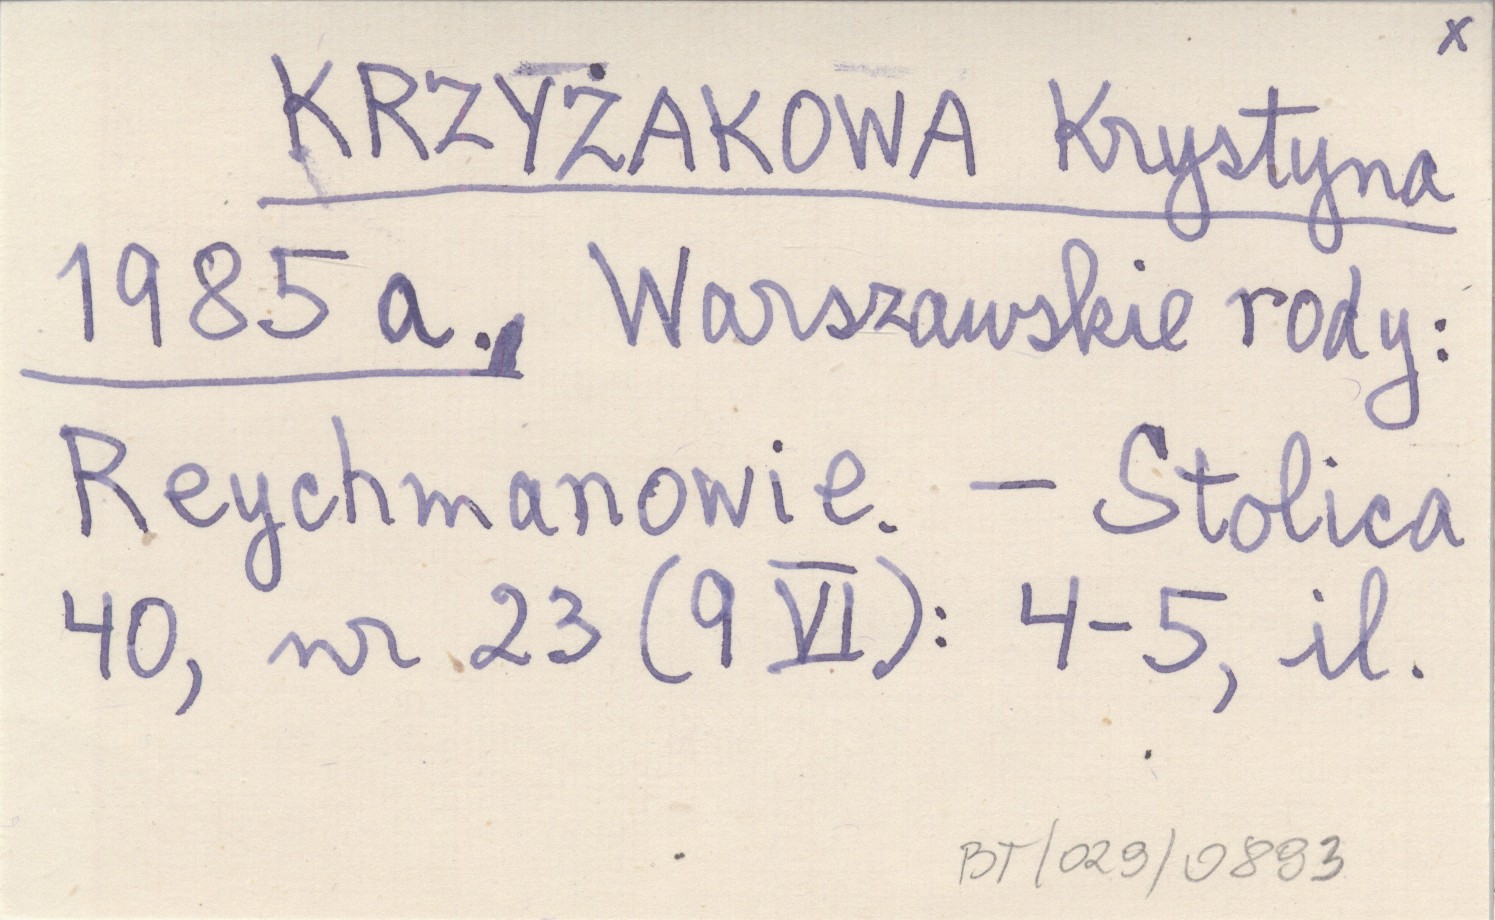 x
KRZYŻAKOWA Krystyna
1985 a. Warszawskie rody:
Reychmanowie. – Stolica
40, nr 23 (9 VI): 4-5, il.
BT/029/0893